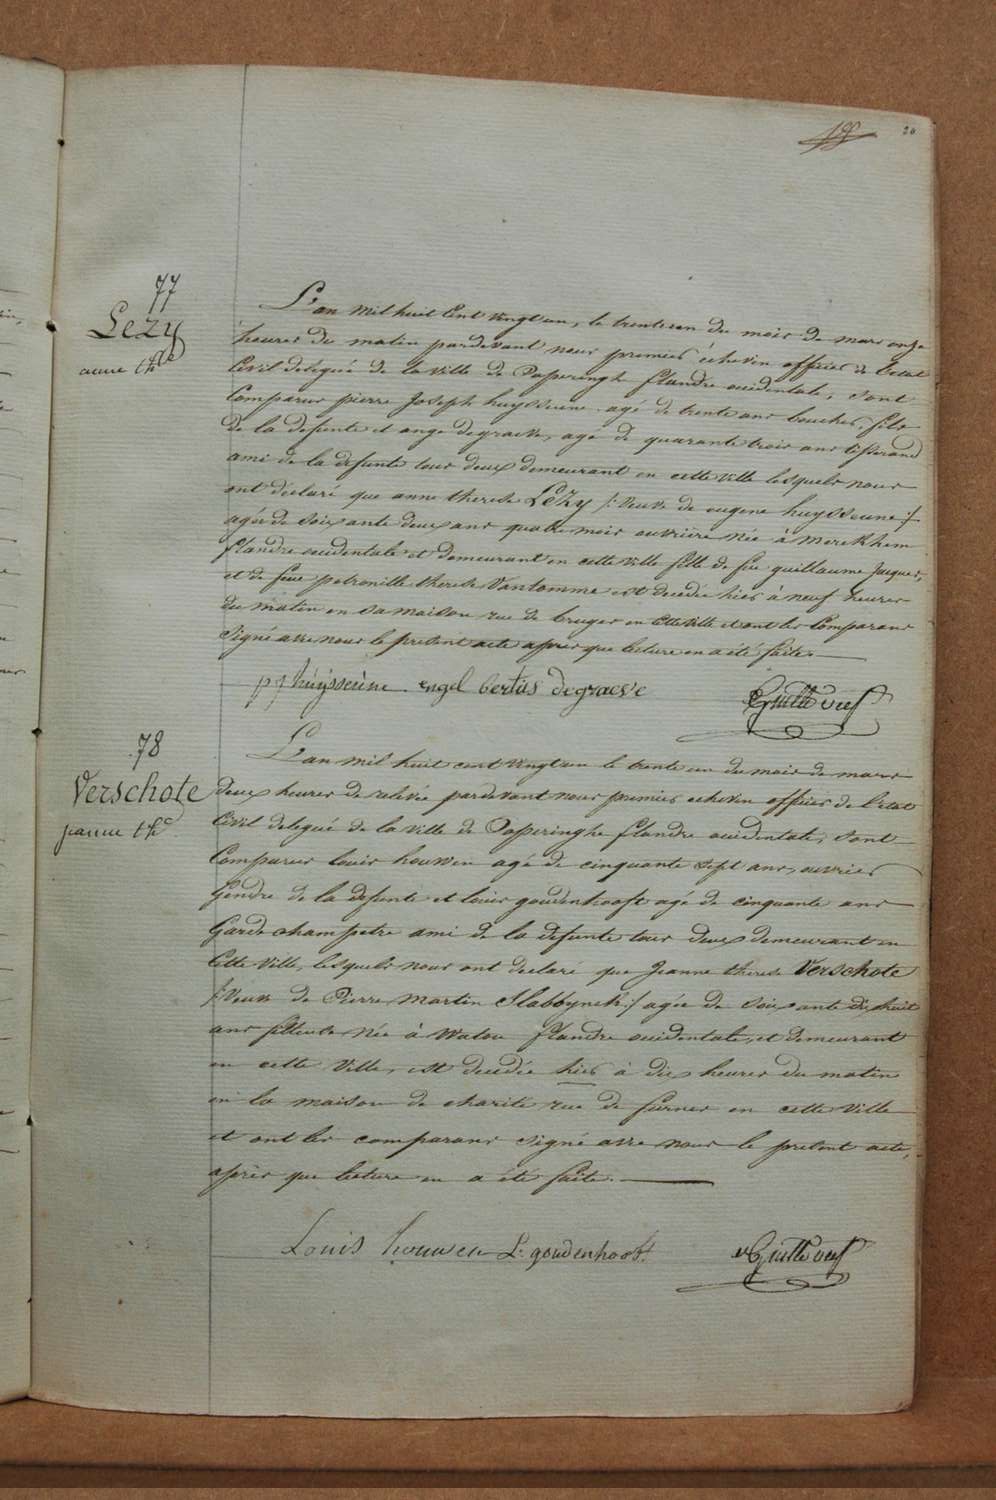 20
77
Lezy
anne thse
L'an mil huit Cent vingt un, le trente un du mois de mars onze
heures du matin pardevant nous premier échevin officier de l'etat
Civil delegué de la ville de Poperinghe flandre occidentale, sont
Comparus pierre Joseph huysseune agé de trente ans boucher, fils
de la defunte et ange degraeve, agé de quarante trois ans tisserand
ami de la defunte tous deux demeurant en cette ville lesquels nous
ont déclaré que anne therese Lezy /: veuve de eugene huysseune :/
agée de soixante deux ans quatre mois ouvrière née à Merckhem
flandre occidentale et demeurant en cette ville fille de feu guillaume Jacques,
et de feue petronille therese Vantomme est decedée hier à neuf heures
du matin en sa maison rue de bruges en cette ville et ont les Comparans
signé avec nous le present acte apres que lecture en a été faite.
pj huÿsseùne engel bertùs degraeve
78
Verschote
jeanne thse
L'an mil huit cent vingt un le trente un du mois de mars
deux heures de relevée pardevant nous premier echevin officier de l'etat
Civil delegué de la ville de Poperinghe flandre occidentale, sont
Comparus louis houwen agé de cinquante sept ans, ouvrier
Gendre de la defunte et louis goudenhooft agé de cinquante ans
Garde champetre ami de la defunte tous deux demeurant en
Cette ville, lesquels nous ont declaré que Jeanne therese Verschote
/: veuve de Pierre Martin Slabbynck :/ agée de soixante dix huit
ans fileuse née à Watou flandre occidentale, et demeurant
en cette ville, est decedée hier à dix heures du matin
en la maison de charité rue de furnes en cette ville
et ont les comparans signé avec nous le present acte,
après que lecture en a été faite.
Louis houwen L. goudenhooft